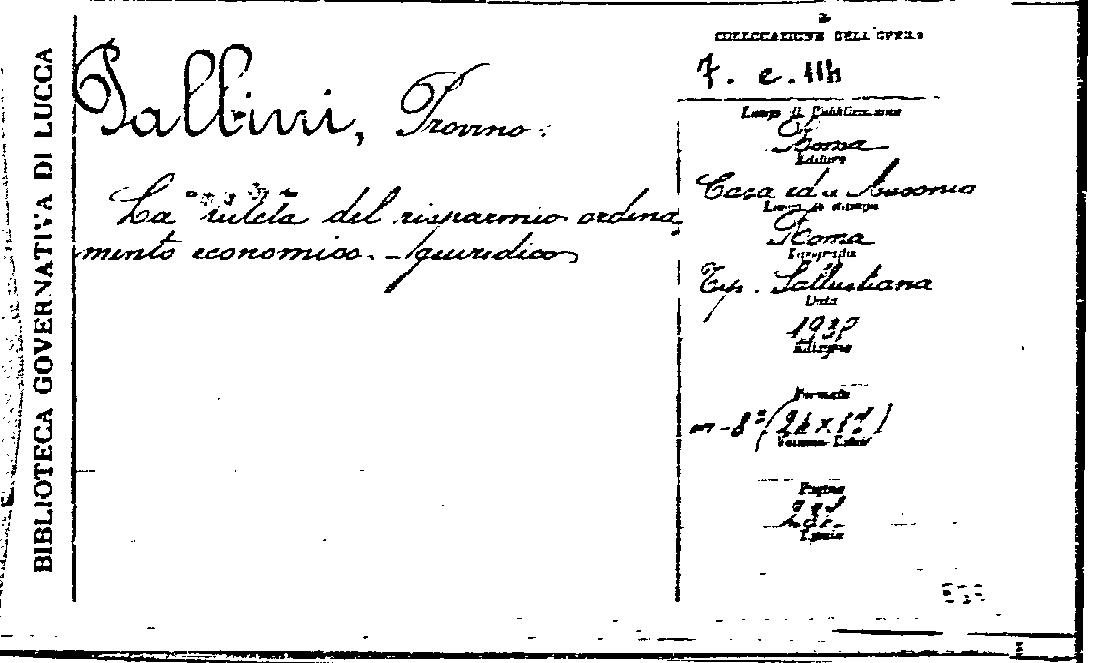 BIBLIOTECA GOVERNATIVA DI LUCCA
Balbini, Provino.
La tutela del risparmio ordina
mento economico - giuridico
COLLOCAZIONE DELL'OPERA
7. e.
Luogo di Pubblicazione
Roma
Editore
Casa ed. Ausonia
Luogo di stampa
Roma
Tipografia
Tip. Sallustiana
Data
Edizione
Formato
in-8°
Volume
Pagine